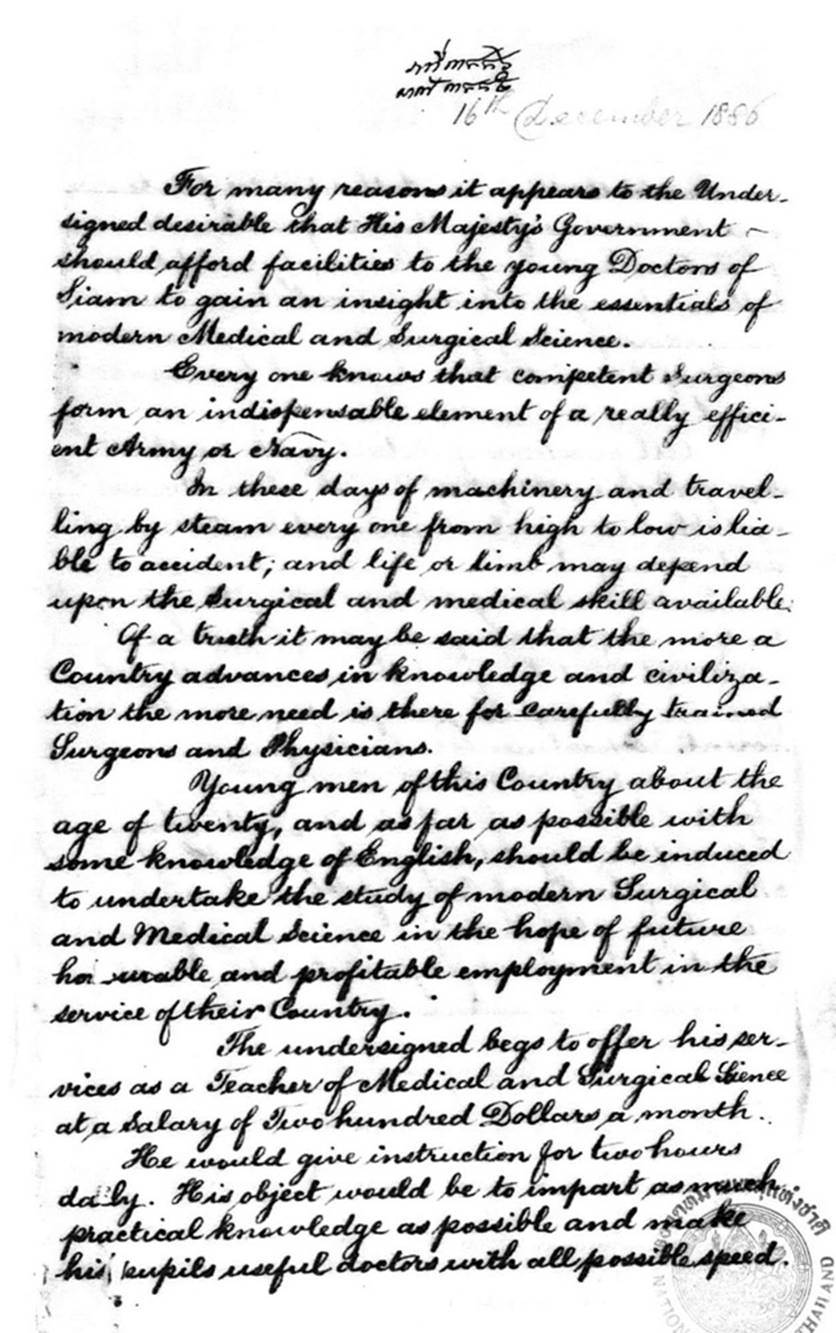 16th December 1886
For many reasons it appears to the Under-
signed desirable that His Majesty's Government
should afford facilities to the young Doctors of
Siam to gain an insight into the essentials of
modern Medical and Surgical Science.
Every one knows that competent Surgeons
form an indispensable element of a really effici-
ent Army or Navy.
In these days of machinery and travel-
ling by steam every one from high to low is lia-
ble to accident; and life or limb may depend
upon the Surgical and medical skill available.
Of a truth it may be said that the more a
Country advances in knowledge and civiliza-
tion the more need is there for carefully trained
Surgeons and Physicians.
Young men of this Country about the
age of twenty, and as far as possible with
some knowledge of English, should be induced
to undertake the study of modern Surgical
and Medical Science in the hope of future
honourable and profitable employment in the
service of their Country.
The undersigned begs to offer his ser-
vices as a Teacher of Medical and Surgical Science
at a Salary of Two hundred Dollars a month.
He would give instruction for two hours
daily. His object would be to impart as much
practical knowledge as possible and make
his pupils useful doctors with all possible speed.